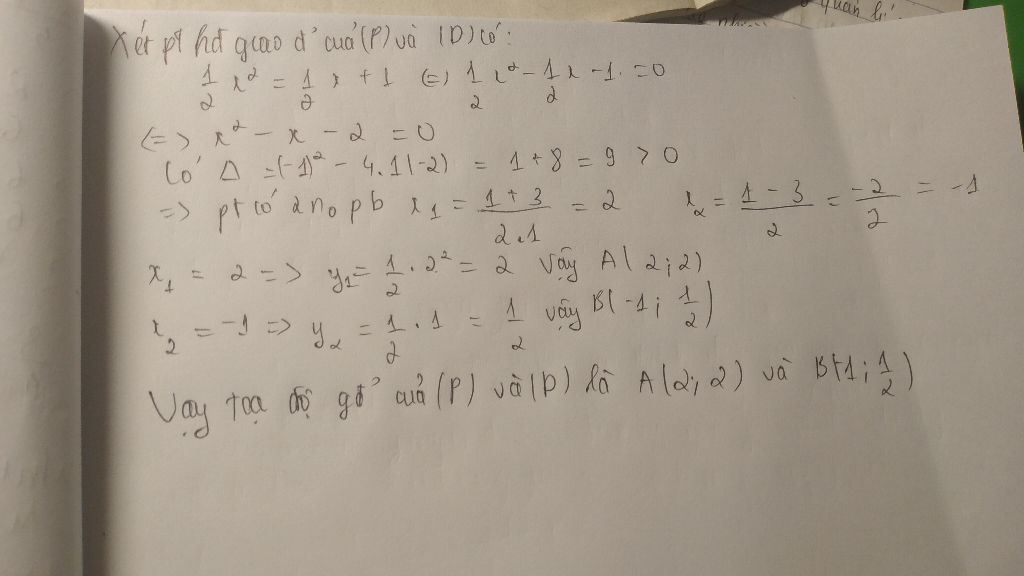 Xét pt hđ giao đ' của (P) và (D) có:
1/2 x² = 1/2 x + 1 (=) 1/2 x² - 1/2 x - 1 = 0
(=> x² - x - 2 = 0
Có Δ = (-1)² - 4.1(-2) = 1 + 8 = 9 > 0
=> pt có 2 no pb x₁ = (1 + 3)/(2.1) = 2 x₂ = (1 - 3)/2 = -2/2 = -1
x₁ = 2 => y₁ = 1/2 . 2² = 2 vậy A(2;2)
x₂ = -1 => y₂ = 1/2 . 1 = 1/2 vậy B(-1; 1/2)
Vậy tọa độ gđ' của (P) và (D) là A(2; 2) và B(-1; 1/2)
quan